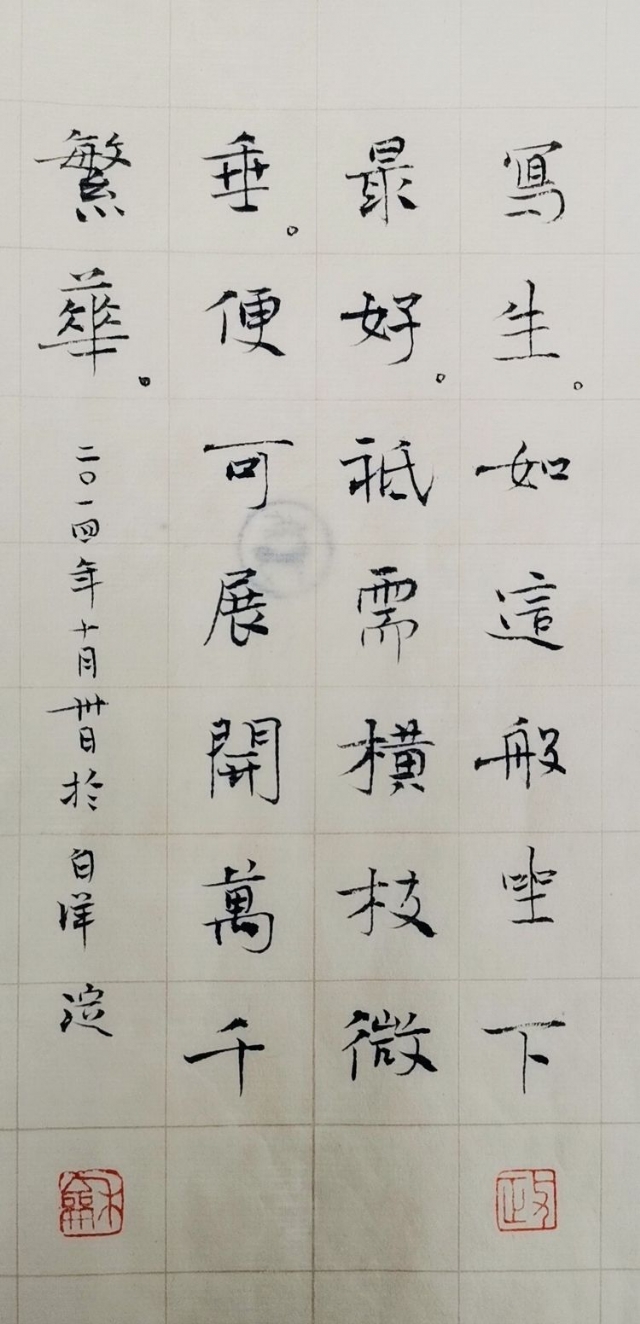 寫生。如這般坐下
最好。祗需橫枝微
垂。便可展開萬千
繁華。二〇一四年十月卅日於白洋淀